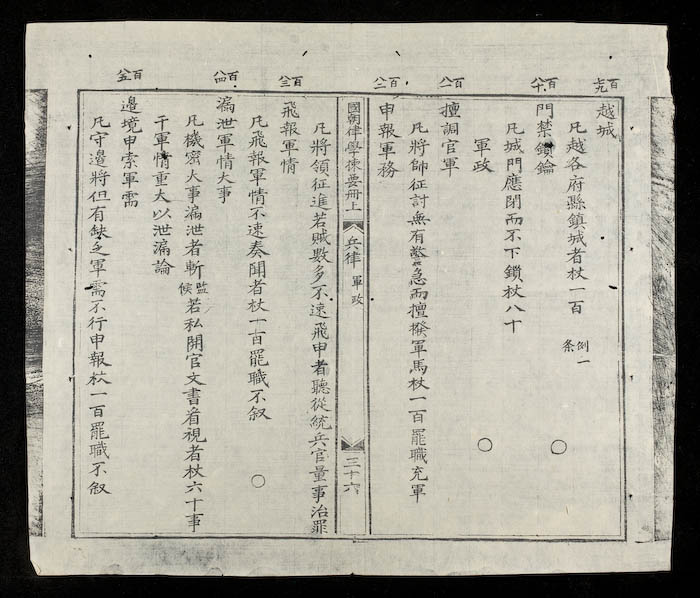 百七九
越城
凡越各府縣鎮城者杖一百 例一条
百八十
門禁鎖鑰
凡城門應閉而不下鎖杖八十 〇
軍政
百八一
擅調官軍
凡將帥征討無有警急而擅撥軍馬杖一百罷職充軍 〇
百八二
申報軍務
國朝律學揀要冊上 兵律 軍政 三十六
凡將領征進若賊數多不速飛申者聽從統兵官量事治罪
百八三
飛報軍情
凡飛報軍情不速奏聞者杖一百罷職不叙 〇
百八四
漏泄軍情大事
凡機密大事漏泄者斬監候若私開官文書看視者杖六十事
干軍情重大以泄漏論
百八五
邊境申索軍需
凡守邊將但有缺乏軍需不行申報杖一百罷職不叙